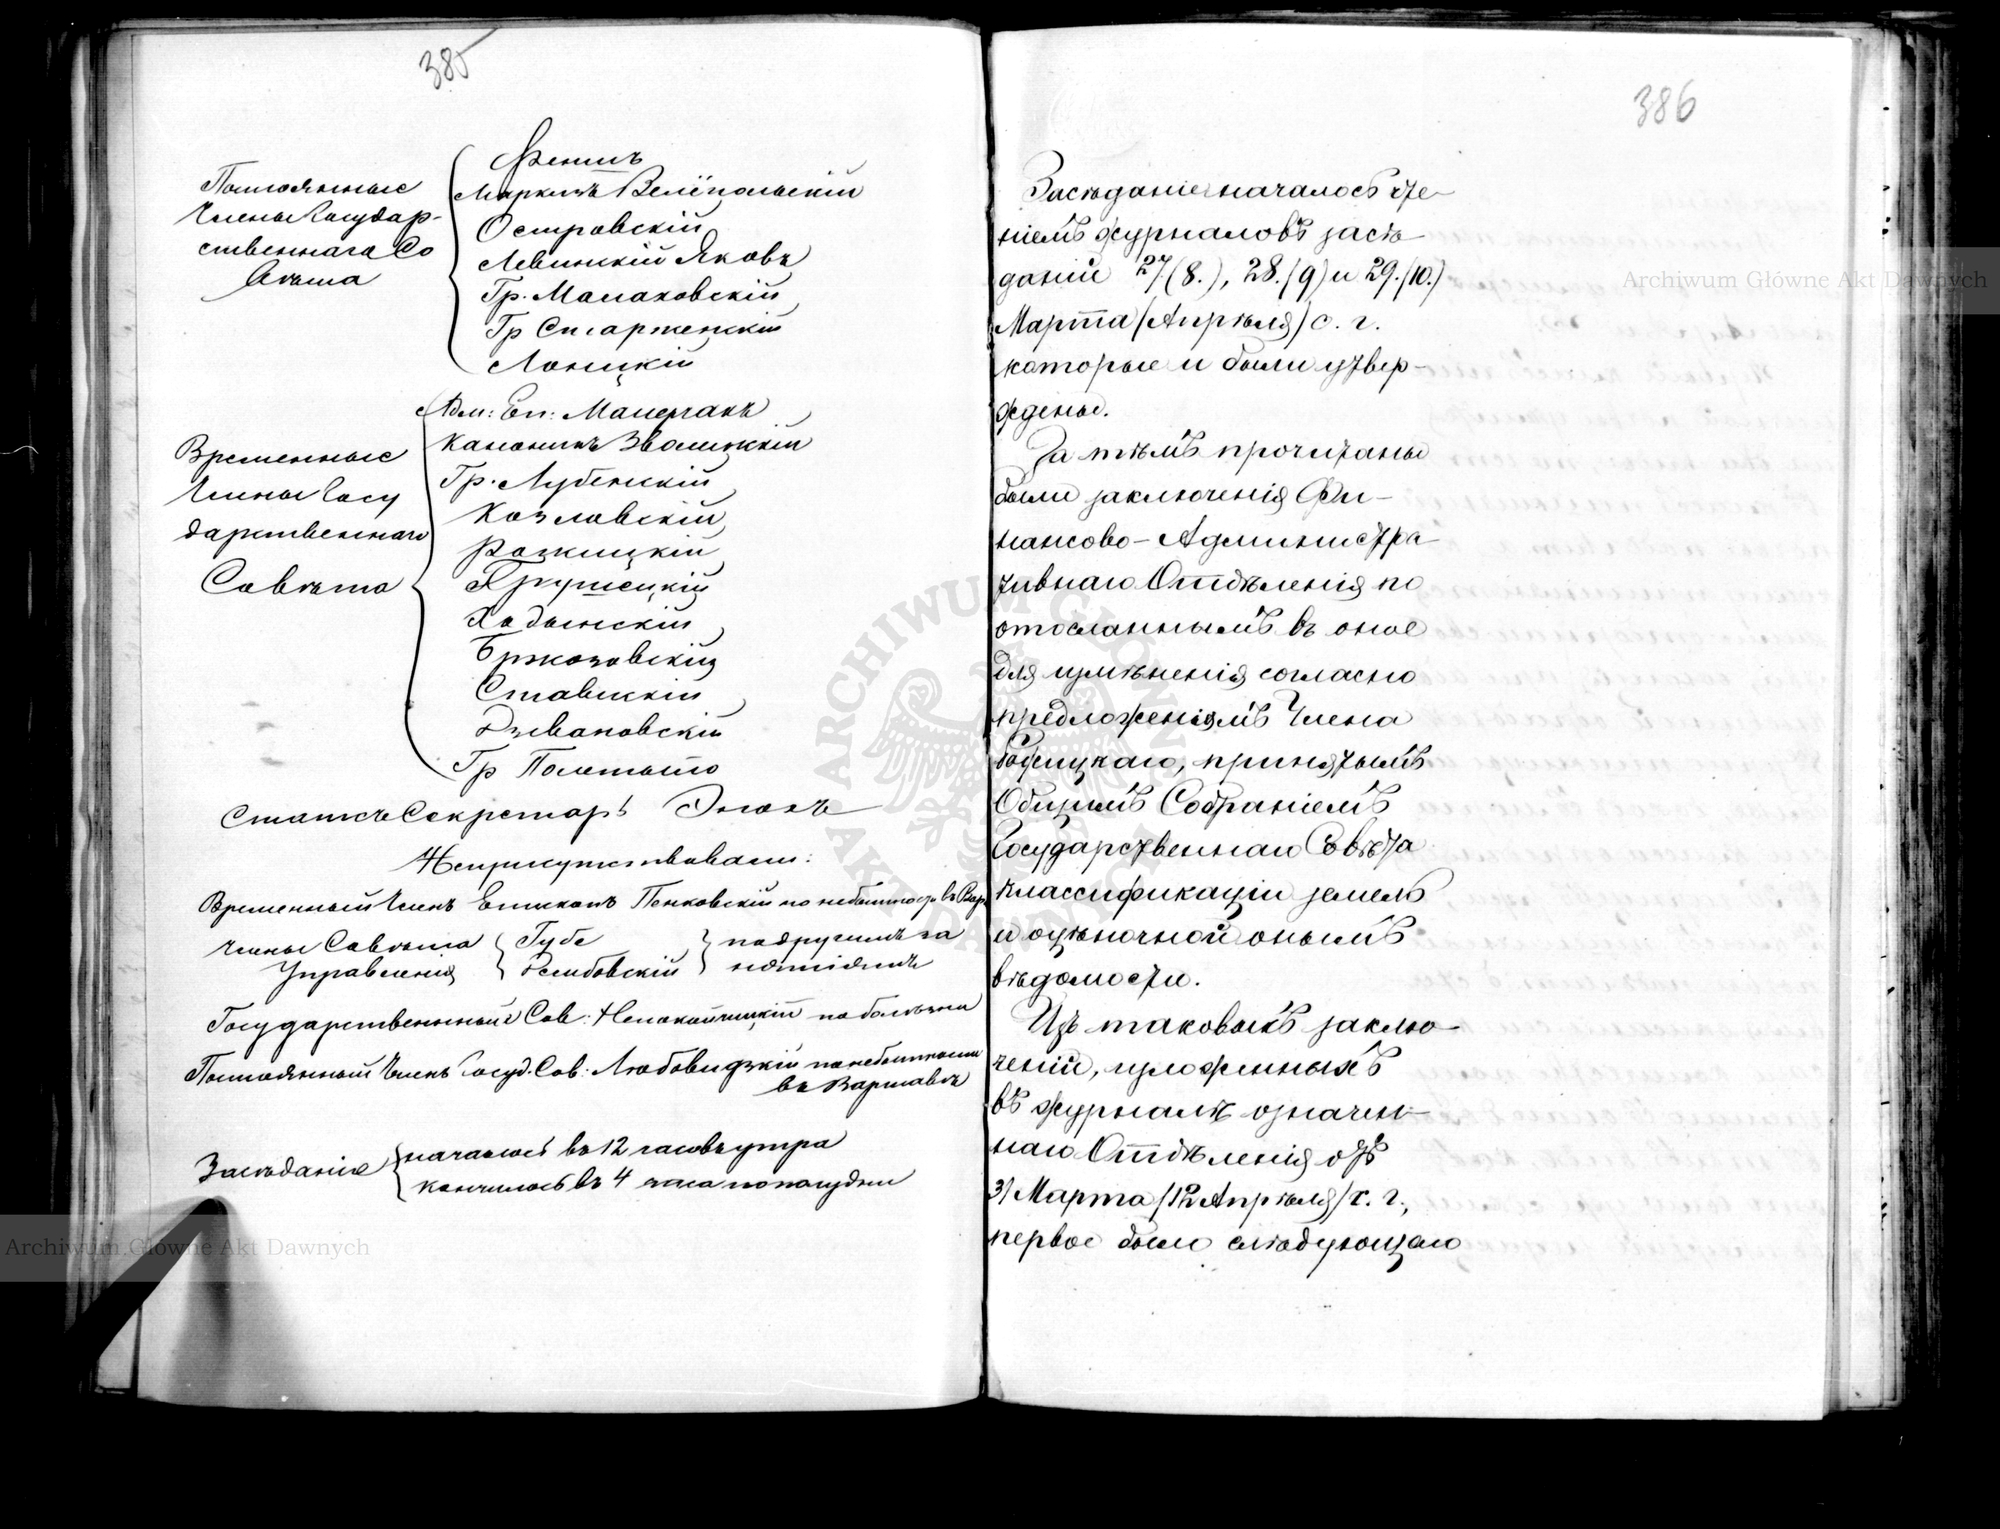 385
Постоянные
Члены Государ-
ственнаго Со
вѣта
Феншъ
Маркизъ Велёпольскій
Островскій
Левинскій Яковъ
Гр. Малаховскій
Гр Старженскій
Лонцкій
Временные
Члены Госу
дарственнаго
Совѣта
Адм: Еп: Маерчакъ
Каноникъ Зволинскій
Гр. Лубенскій
Козловскій
Рожицкій
Грушецкій
Ходынскій
Бржозовскій
Ставискій
Дзевановскій
Гр Полетыло
Статсъ Секретарь Энохъ
Неприсутствовали:
Временный Членъ Епископъ Пенковскій по небытности въ Вар.
Члены Совѣта
Управленія
Губе
Дембовскій
по другимъ за
нятіямъ
Государственный Сов: Непокойчицкій по болѣзни
Постоянный Членъ Госуд. Сов: Любовидзкій по небытности
въ Варшавѣ
Засѣданіе
началось въ 12 часовъ утра
кончилось въ 4 часа пополудни
386
Засѣданіе началось чте-
ніемъ журналовъ засѣ-
даній 27.(8.), 28.(9) и 29.(10.)
Марта/Апрѣля/с. г.
которые и были утвер-
ждены.
За тѣмъ прочитаны
были заключенія Фи-
нансово-Администра-
тивнаго Отдѣленія по
отосланнымъ въ оное
для измѣненія согласно
предложеніямъ Члена
принятымъ
Общимъ Собраніемъ
Государственнаго Совѣта
классификаціи земель
и оцѣночной онымъ
вѣдомости.
Изъ таковыхъ заклю-
ченій, изложенныхъ
въ журналѣ означен-
наго Отдѣленія отъ
31 Марта/12 Апрѣля/с. г.,
первое было слѣдующаго
Archiwum Główne Akt Dawnych
Archiwum Główne Akt Dawnych
ARCHIWUM GŁÓWNE AKT DAWNYCH